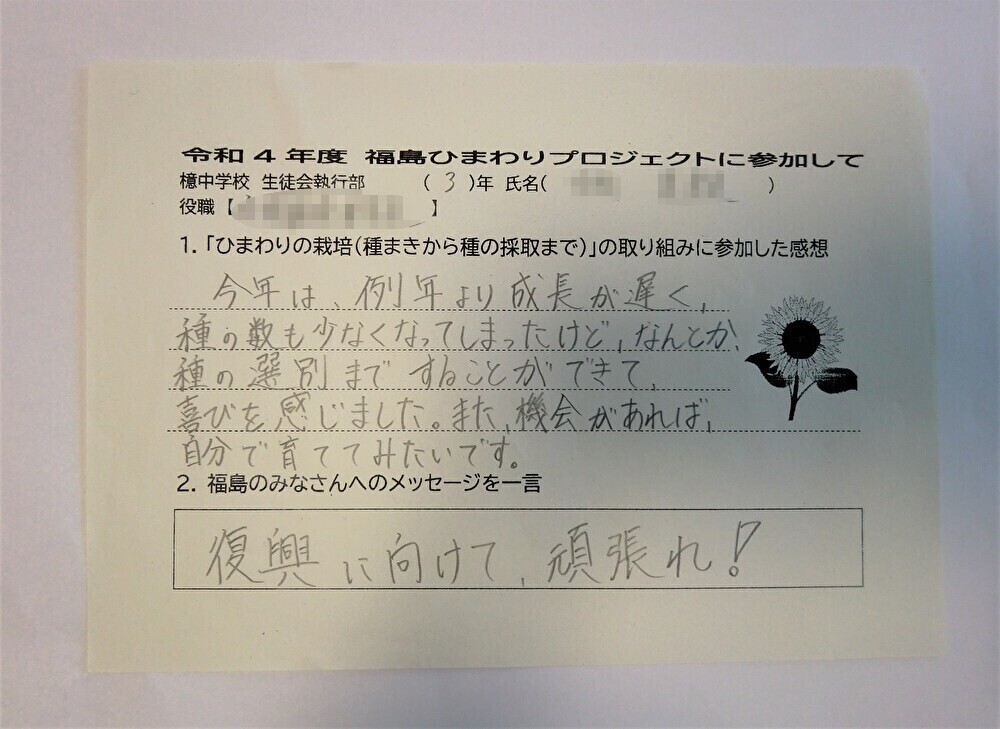 令和4年度 福島ひまわりプロジェクトに参加して
檍中学校 生徒会執行部 (3)年 氏名( )
役職【 】
1. 「ひまわりの栽培(種まきから種の採取まで)」の取り組みに参加した感想
今年は、例年より成長が遅く、
種の数も少なくなってしまったけど、なんとか、
種の選別まですることができて、
喜びを感じました。また、機会があれば、
自分で育ててみたいです。
2. 福島のみなさんへのメッセージを一言
復興に向けて、頑張れ!